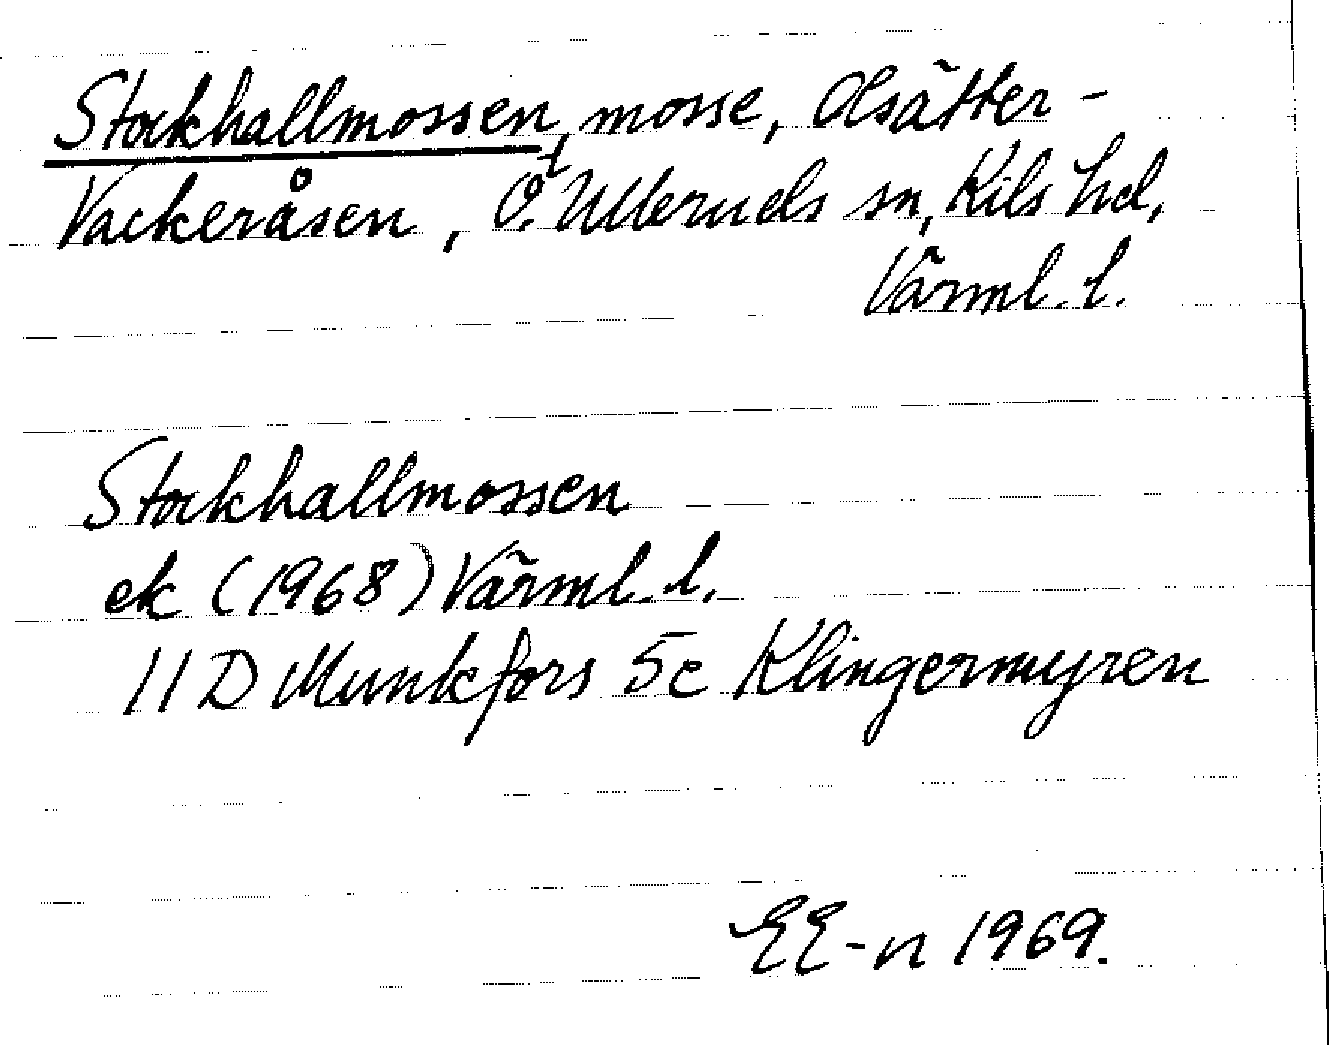 Stockhallmossen, mosse, Olsätter-
Vackeråsen, Ö. Ulleruds sn, Kils hd,
Värml. l.
Stockhallmossen
ek (1968) Värml. l.
11 D Munkfors 5c Klingermyren
EE-n 1969.